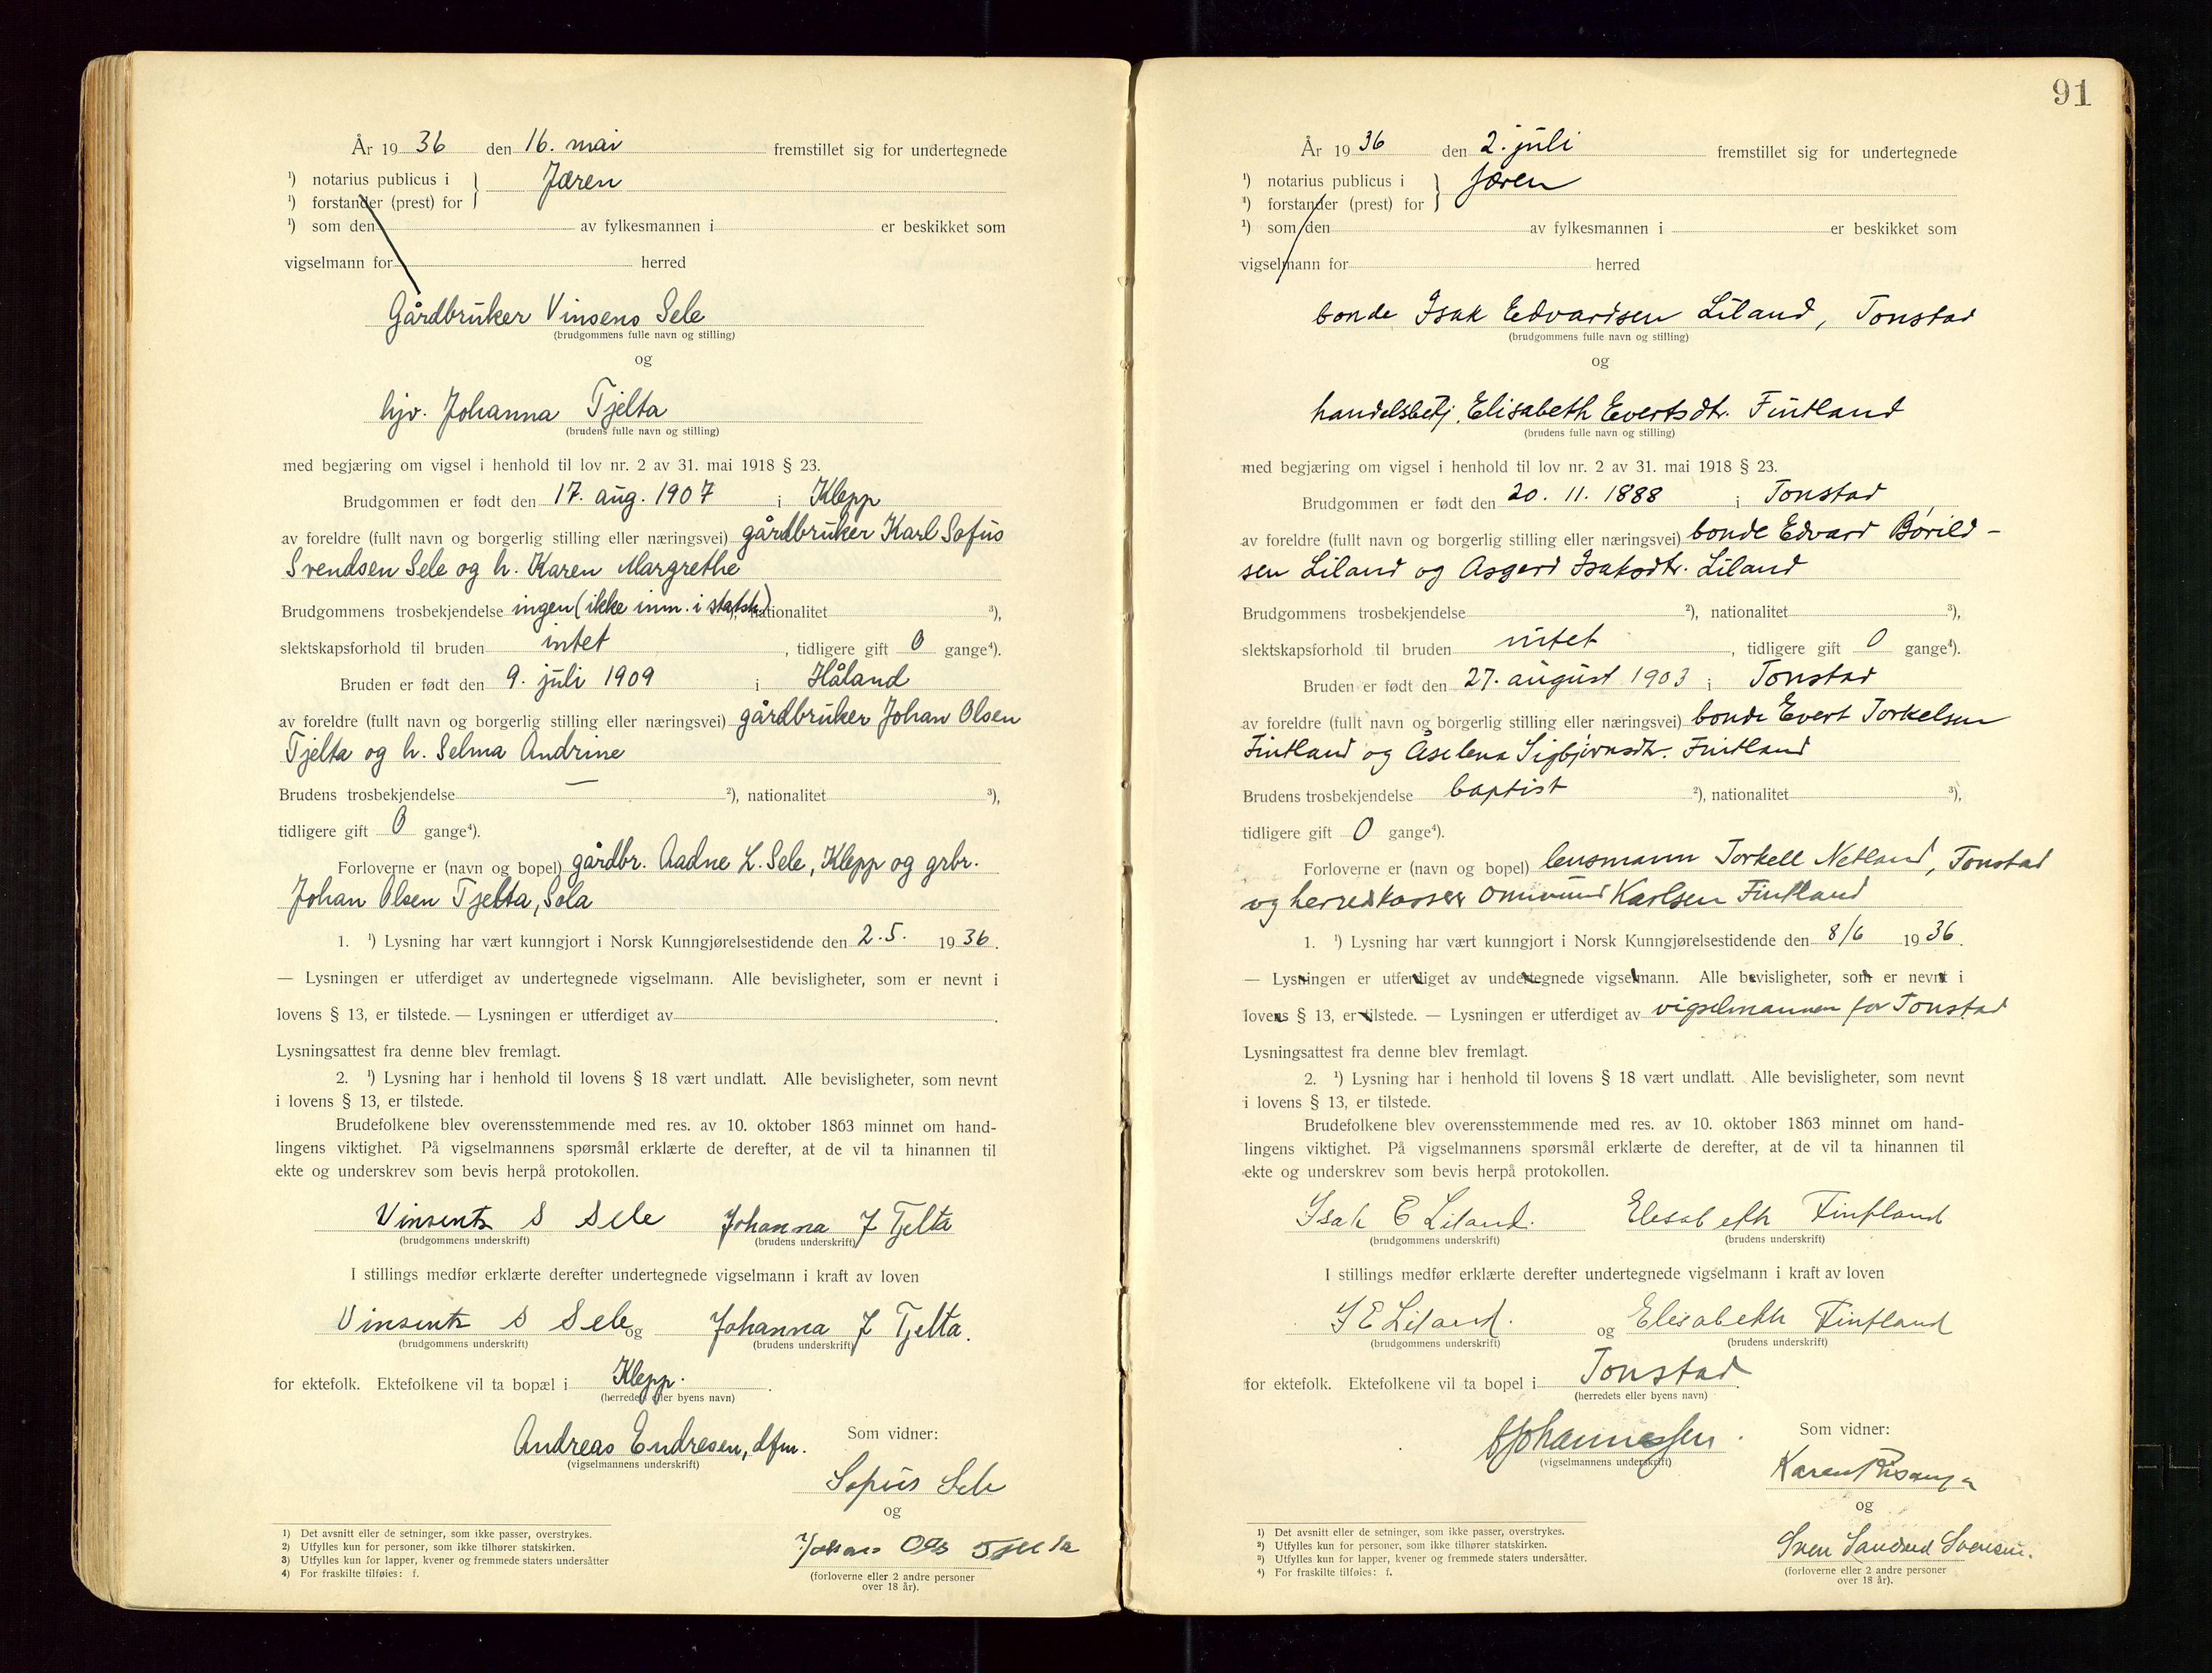 År 19 36 den 16. mai fremstillet sig for undertegnede
¹) notarius publicus i } Jæren
¹) forstander (prest) for
¹) som den av fylkesmannen i er beskikket som
vigselmann for herred
Gårdbruker Vinsens Sele
(brudgommens fulle navn og stilling)
og
hjv. Johanna Tjelta
(brudens fulle navn og stilling)
med begjæring om vigsel i henhold til lov nr. 2 av 31. mai 1918 § 23.
Brudgommen er født den 17. aug. 1907 i Klepp
av foreldre (fullt navn og borgerlig stilling eller næringsvei) gårdbruker Karl Sofus
Svendsen Sele og h. Karen Margrethe
Brudgommens trosbekjendelse ingen (ikke inm. i statsk) ²), nationalitet ³),
slektskapsforhold til bruden intet, tidligere gift 0 gange⁴).
Bruden er født den 9. juli 1909 i Håland
av foreldre (fullt navn og borgerlig stilling eller næringsvei) gårdbruker Johan Olsen
Tjelta og h. Selma Andrine
Brudens trosbekjendelse — ²), nationalitet ³),
tidligere gift 0 gange⁴).
Forloverne er (navn og bopel) gårdbr. Aadne L. Sele, Klepp og grbr.
Johan Olsen Tjelta, Sola
1. ¹) Lysning har vært kunngjort i Norsk Kunngjørelsestidende den 2.5. 1936.
— Lysningen er utferdiget av undertegnede vigselmann. Alle bevisligheter, som er nevnt i
lovens § 13, er tilstede. — Lysningen er utferdiget av .
Lysningsattest fra denne blev fremlagt.
2. ¹) Lysning har i henhold til lovens § 18 vært undlatt. Alle bevisligheter, som nevnt
i lovens § 13, er tilstede.
Brudefolkene blev overensstemmende med res. av 10. oktober 1863 minnet om hand-
lingens viktighet. På vigselmannens spørsmål erklærte de derefter, at de vil ta hinannen til
ekte og underskrev som bevis herpå protokollen.
Vinsents S Sele Johanna J Tjelta
(brudgommens underskrift) (brudens underskrift)
I stillings medfør erklærte derefter undertegnede vigselmann i kraft av loven
Vinsents S Sele og Johanna J Tjelta.
(brudgommens underskrift) (brudens underskrift)
for ektefolk. Ektefolkene vil ta bopæl i Klepp.
(herredets eller byens navn)
Andreas Endresen, dfm. Som vidner:
(vigselmannens underskrift)
Sofus Sele
og
Johan Ols Tjelta
(forloverne eller 2 andre personer
over 18 år).
1) Det avsnitt eller de setninger, som ikke passer, overstrykes.
2) Utfylles kun for personer, som ikke tilhører statskirken.
3) Utfylles kun for lapper, kvener og fremmede staters undersåtter
4) For fraskilte tilføies: f.
91
År 19 36 den 2. juli fremstillet sig for undertegnede
¹) notarius publicus i } Jæren
¹) forstander (prest) for
¹) som den av fylkesmannen i er beskikket som
vigselmann for herred
bonde Isak Edvardsen Liland, Tonstad
(brudgommens fulle navn og stilling)
og
handelsbetj. Elisabeth Evertsdtr. Fintland
(brudens fulle navn og stilling)
med begjæring om vigsel i henhold til lov nr. 2 av 31. mai 1918 § 23.
Brudgommen er født den 20. 11. 1888 i Tonstad
av foreldre (fullt navn og borgerlig stilling eller næringsvei) bonde Edvard Børild-
sen Liland og Asgerd Isaksdtr. Liland
Brudgommens trosbekjendelse ²), nationalitet ³),
slektskapsforhold til bruden intet, tidligere gift 0 gange⁴).
Bruden er født den 27. august 1903 i Tonstad
av foreldre (fullt navn og borgerlig stilling eller næringsvei) bonde Evert Torkelsen
Fintland og Åselena Sigbjørnsdtr. Fintland
Brudens trosbekjendelse baptist ²), nationalitet ³),
tidligere gift 0 gange⁴).
Forloverne er (navn og bopel) lensmann Torkell Netland, Tonstad
og herredskasser Ommund Karlsen Fintland
1. ¹) Lysning har vært kunngjort i Norsk Kunngjørelsestidende den 8/6 1936.
— Lysningen er utferdiget av undertegnede vigselmann. Alle bevisligheter, som er nevnt i
lovens § 13, er tilstede. — Lysningen er utferdiget av vigselmannen for Tonstad
Lysningsattest fra denne blev fremlagt.
2. ¹) Lysning har i henhold til lovens § 18 vært undlatt. Alle bevisligheter, som nevnt
i lovens § 13, er tilstede.
Brudefolkene blev overensstemmende med res. av 10. oktober 1863 minnet om hand-
lingens viktighet. På vigselmannens spørsmål erklærte de derefter, at de vil ta hinannen til
ekte og underskrev som bevis herpå protokollen.
Isak E Liland. Elisabeth Fintland
(brudgommens underskrift) (brudens underskrift)
I stillings medfør erklærte derefter undertegnede vigselmann i kraft av loven
I E Liland. og Elisabeth Fintland
(brudgommens underskrift) (brudens underskrift)
for ektefolk. Ektefolkene vil ta bopel i Tonstad.
(herredets eller byens navn)
Johannessen. Som vidner:
(vigselmannens underskrift)
Karen
og
Sven Svensen.
(forloverne eller 2 andre personer
over 18 år).
1) Det avsnitt eller de setninger, som ikke passer, overstrykes.
2) Utfylles kun for personer, som ikke tilhører statskirken.
3) Utfylles kun for lapper, kvener og fremmede staters undersåtter.
4) For fraskilte tilføies: f.